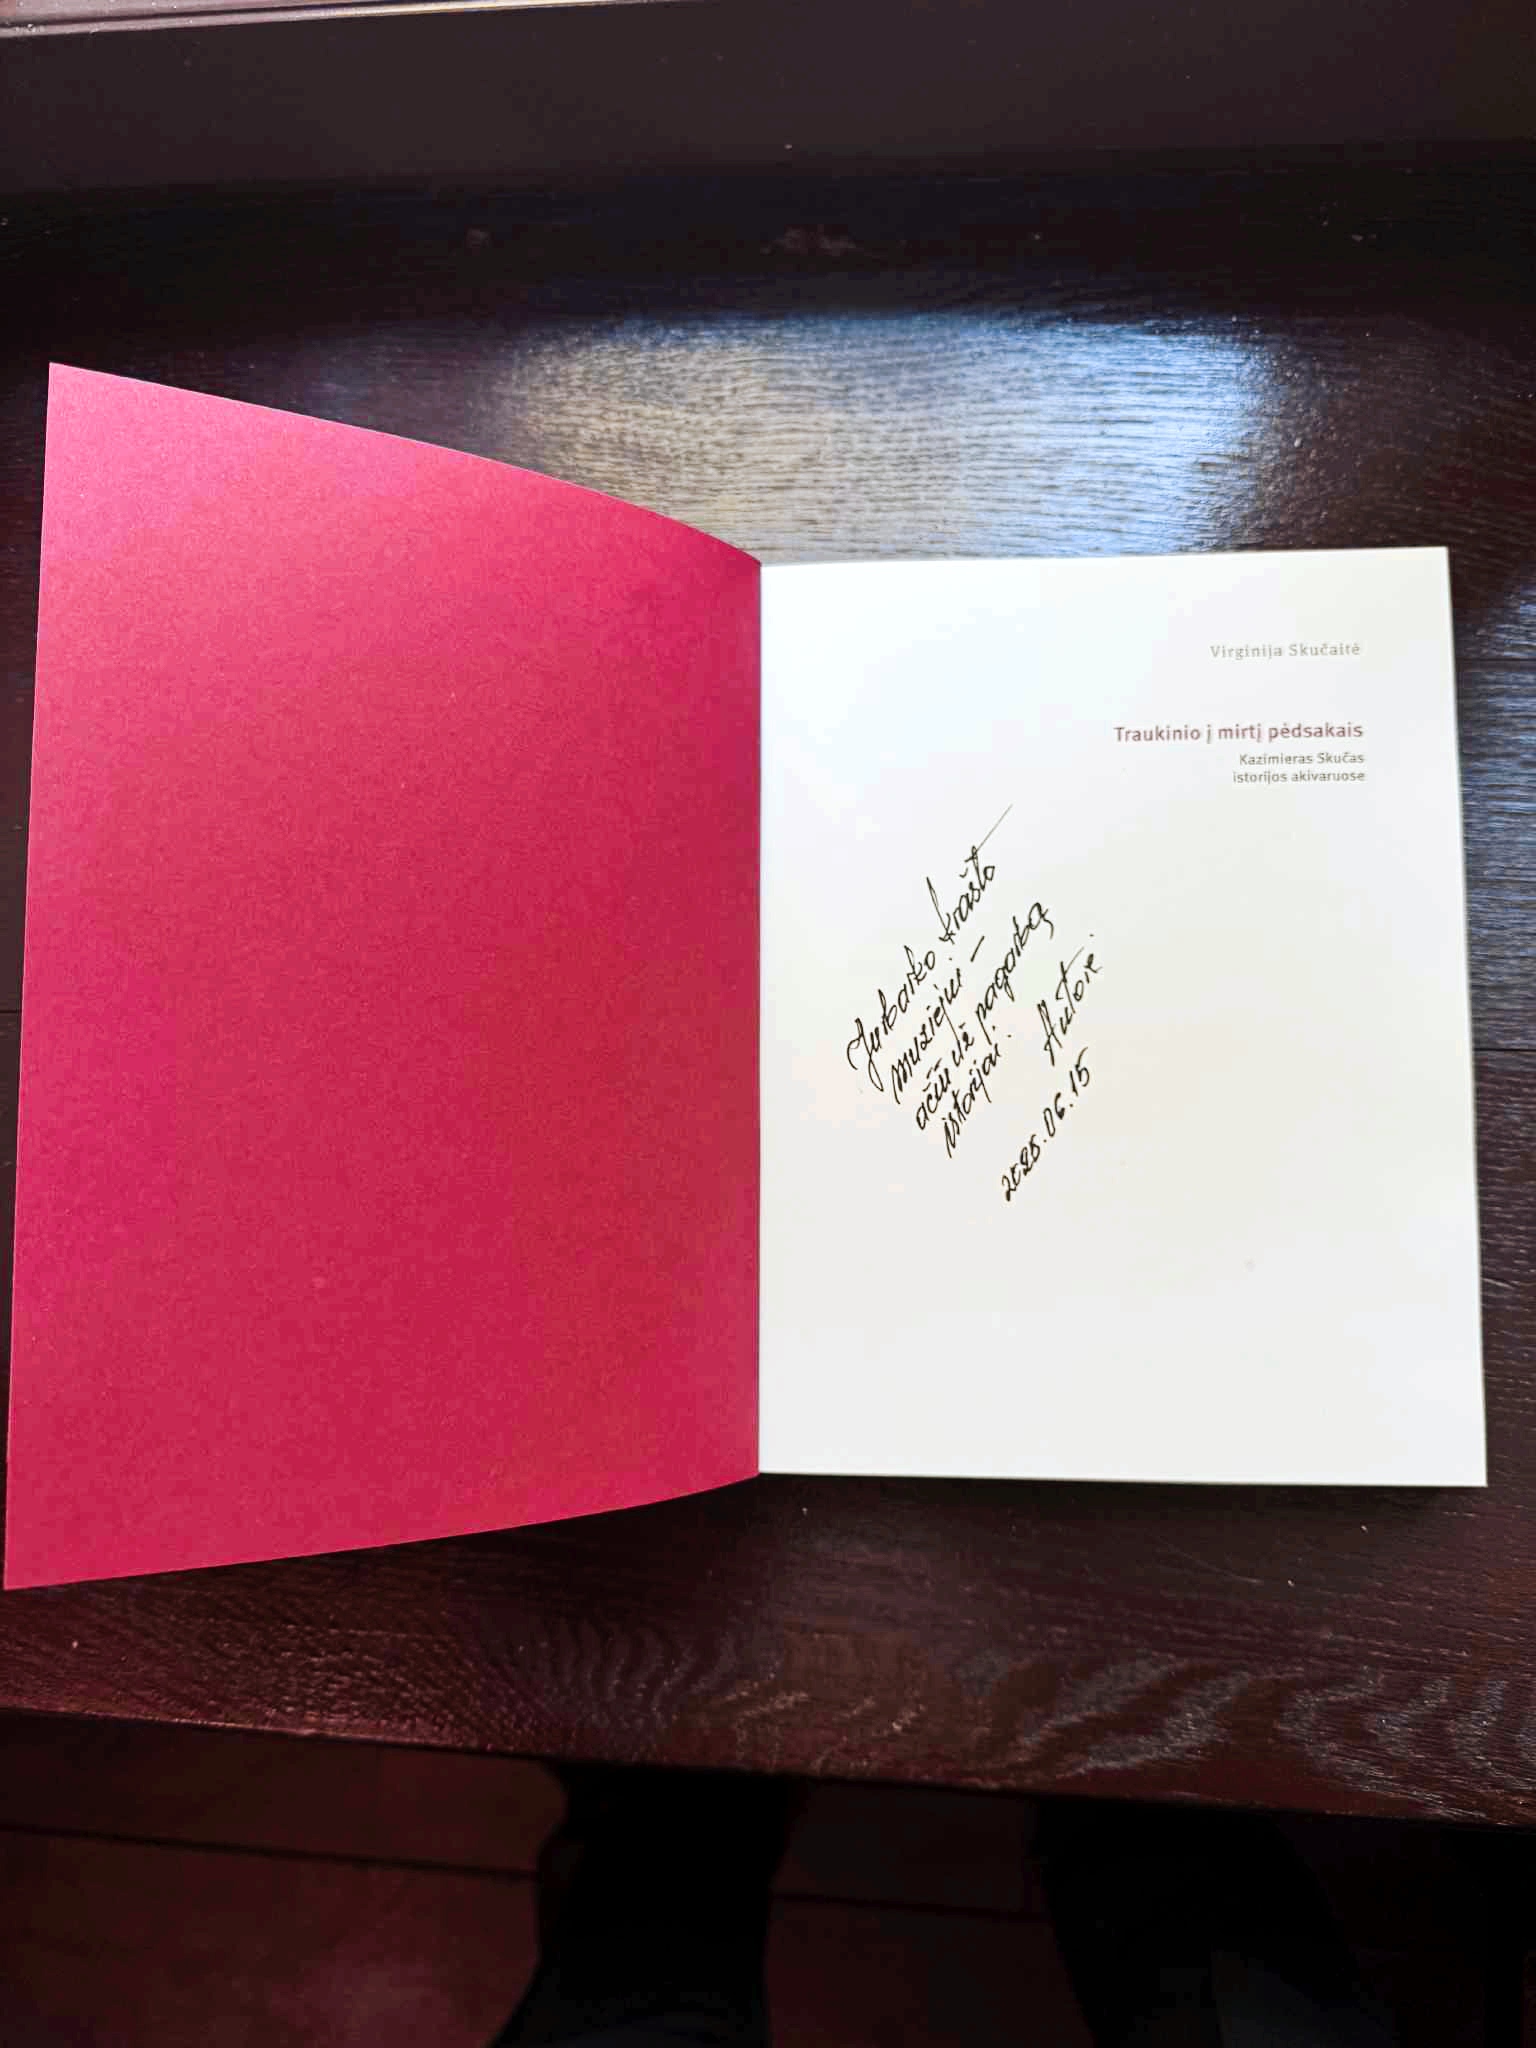 Virginija Skučaitė
Traukinio į mirtį pėdsakais
Kazimieras Skučas
istorijos akivaruose
Jurbarko krašto
muziejui –
ačiū už pagarbą
istorijai.
Autorė
2025.06.15